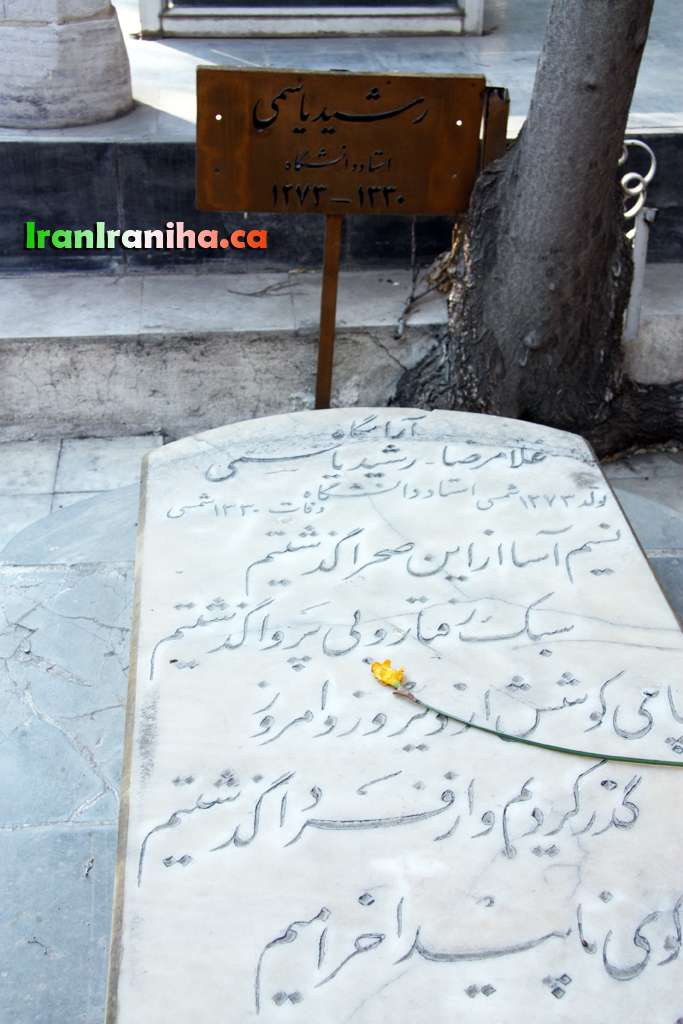 رشید یاسمی
استاد دانشگاه
۱۲۷۳ – ۱۳۳۰
IranIraniha.ca
آرامگاه
غلامرضا - رشید یاسمی
تولد ۱۲۷۳ شمسی استاد دانشگاه وفات ۱۳۳۰ شمسی
نسیم آسا از این صحرا گذشتیم
سبک رفتار و بی پروا گذشتیم
پای کوشش از دیروز و امروز
گذر کردیم و از فردا گذشتیم
کوی ناپیدا خرامیم